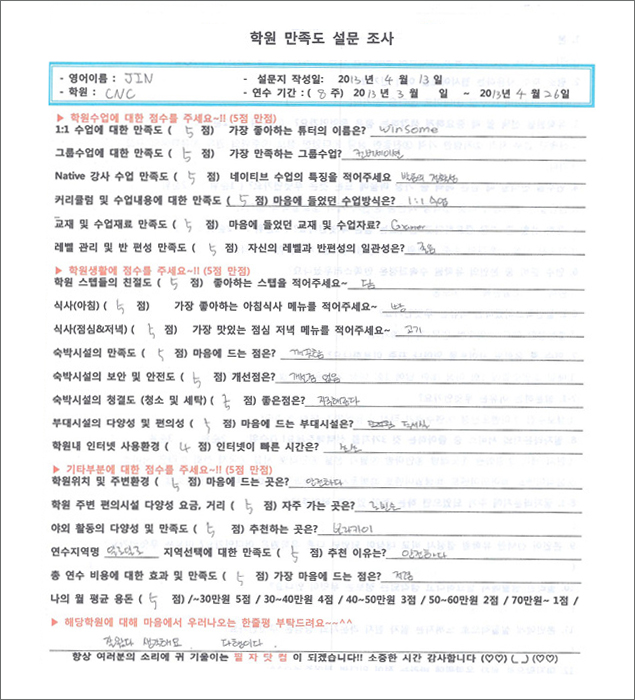 학원 만족도 설문 조사
- 영어이름 : JIN - 설문지 작성일: 2013년 4 월 13일
- 학원 : CNC - 연수 기간 : ( 8 주) 2013년 3 월 일 ~ 2013년 4 월 26일
▶ 학원수업에 대한 점수를 주세요~!! (5점 만점)
1:1 수업에 대한 만족도 ( 5 점) 가장 좋아하는 튜터의 이름은? winsome
그룹수업에 대한 만족도 ( 5 점) 가장 만족하는 그룹수업? 컨버세이션
Native 강사 수업 만족도 ( 5 점) 네이티브 수업의 특징을 적어주세요
커리큘럼 및 수업내용에 대한 만족도 ( 5 점) 마음에 들었던 수업방식은? 1:1 수업
교재 및 수업재료 만족도 ( 5 점) 마음에 들었던 교재 및 수업자료?
레벨 관리 및 반 편성 만족도 ( 5 점) 자신의 레벨과 반편성의 일관성은? 좋음
▶ 학원생활에 점수를 주세요~!! (5점 만점)
학원 스텝들의 친절도 ( 5 점) 좋아하는 스텝을 적어주세요~ 다
식사(아침) ( 5 점) 가장 좋아하는 아침식사 메뉴를 적어주세요~ 빵
식사(점심&저녁) ( 5 점) 가장 맛있는 점심 저녁 메뉴를 적어주세요~ 고기
숙박시설의 만족도 ( 5 점) 마음에 드는 점은? 깨끗함
숙박시설의 보안 및 안전도 ( 5 점) 개선점은? 개선점 없음
숙박시설의 청결도 (청소 및 세탁) ( 5 점) 좋은점은?
부대시설의 다양성 및 편의성 ( 5 점) 마음에 드는 부대시설은?
학원내 인터넷 사용환경 ( 4 점) 인터넷이 빠른 시간은?
▶ 기타부분에 대한 점수를 주세요~!! (5점 만점)
학원위치 및 주변환경 ( 5 점) 마음에 드는 곳은? 안전하다
학원 주변 편의시설 다양성 요금, 거리 ( 5 점) 자주 가는 곳은? 로빈슨
야외 활동의 다양성 및 만족도 ( 5 점) 추천하는 곳은? 보라카이
연수지역명 지역선택에 대한 만족도 ( 5 점) 추천 이유는? 안전하다
총 연수 비용에 대한 효과 및 만족도 ( 5 점) 가장 마음에 드는 점은? 저렴
나의 월 평균 용돈 ( 5 점) /~30만원 5점 / 30~40만원 4점 / 40~50만원 3점 / 50~60만원 2점 / 70만원~ 1점 /
▶ 해당학원에 대해 마음에서 우러나오는 한줄평 부탁드려요~~^^
잘왔다 생각해요. 다행이다.
항상 여러분의 소리에 귀 기울이는 필 자 닷 컴 이 되겠습니다!! 소중한 시간 감사합니다 (♡♡) (_) (♡♡)